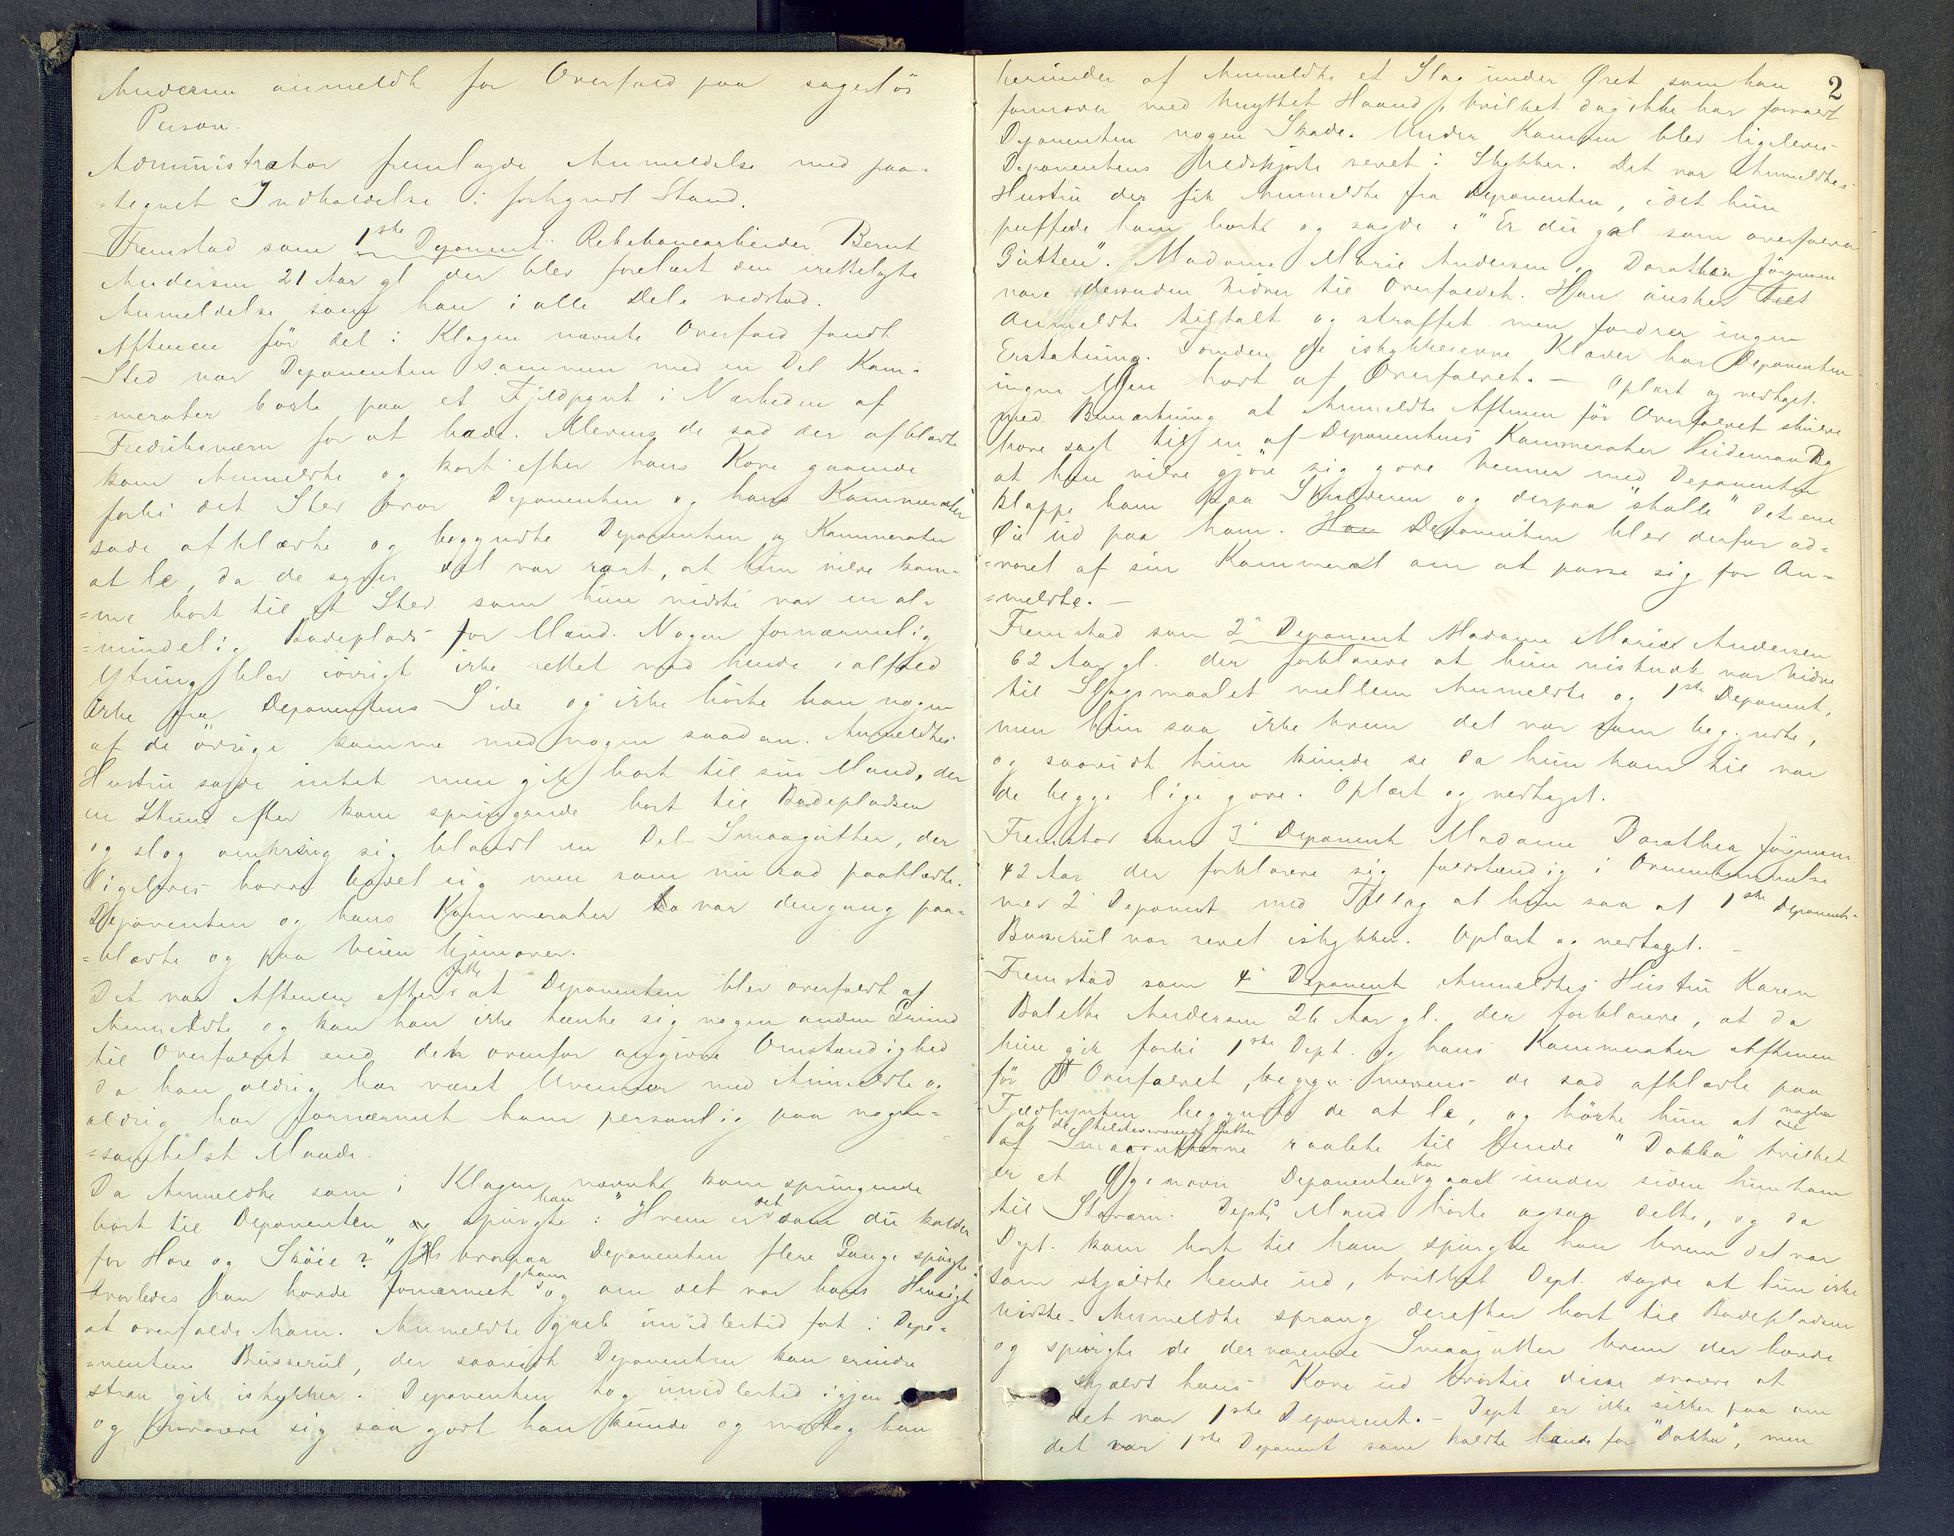 Andersen anmeldt for Overfald paa sagesløs
Person.
Administrator fremlagde Anmeldelse med paa=
=tegnet Indkaldelse i forkyndt Stand.
Fremstod som 1ste Deponent Rebslagerarbeider Bernt
Andersen 21 Aar gl der blev forelæst den irettelagte
Anmeldelse som han i alle Dele vedstod.
Aftenen før det i Klagen nævnte Overfald fandt
Sted var Deponenten sammen med en Del Kam=
=merater borte paa et Fjeldpynt i Nærheden af
Fredriksværn for at bade. Mens de sad der afklædte
kom Anmeldte og kort efter hans Kone gaaende
forbi det Sted hvor Deponenten og hans Kammerater
sade afklædte og begyndte Deponenten og Kammerater
at le, da de synes det var rart, at hun vilde kom=
=me bort til et Sted som hun vidste var en al=
=mindelig Badeplads for Mænd. Nogen fornærmelig
Ytring blev iøvrigt ikke rettet mod hende ialfald
ikke fra Deponentens Side og ikke hørte han nogen
af de øvrige komme med nogen saadan. Anmeldtes
Hustru sagde intet men gik bort til sin Mand, der
en Stund efter kom springende bort til Badepladsen
og slog omkring sig blandt en Del Smaagutter, der
ligeledes havde badet sig men som nu sad paaklædte.
Deponenten og hans Kammerater var dengang paa=
=klædte og paa Veien hjemover.
Det var Aftenen efter dette at Deponenten blev overfaldt af
Anmeldte og kan han ikke tænke sig nogen anden Grund
til Overfaldet end den ovenfor angivne Omstændighed
da han aldrig har været Uvenner med Anmeldte og
aldrig har fornærmet ham personlig paa nogen=
=somhelst Maade.
Da Anmeldte som i Klagen nævnte kom springende
bort til Deponenten spurgte han: "Hvem er det som du kalder
for Hore og Skøie?" hvorpaa Deponenten flere Gange spurgte
hvorledes han havde fornærmet ham og om det var hans Hensigt
at overfalde ham. Anmeldte greb imidlertid fat i Depo=
=nentens Busserul, der saavidt Deponenten kan erindre
strax gik istykker. Deponenten tog imidlertid igjen
og forsvarede sig saa godt han kunde og modtog han
2
herunder af Anmeldte et Slag under Øret som han
formoder med knyttet Haand, hvilket dog ikke har forvoldt
Deponenten nogen Skade. Under Kampen blev ligeledes
Deponentens Hvedskjorte revet i Stykker. Det var Anmeldtes
Hustru der fik Anmeldte fra Deponenten, idet hun
puffede ham bort og sagde: "Er du gal som overfalder
Gutten". Madame Marie Andersen og Dorothea Jørgensen
vare desuden Vidner til Overfaldet. Han ønsker
Anmeldte tiltalt og straffet men fordrer ingen
Erstatning. Foruden de istykkerrevne Klæder har Deponenten
ingen Men havt af Overfaldet. — Oplæst og vedtaget.
med Bemærkning at Anmeldte Aftenen før Overfaldet skulde
have sagt til en af Deponentens Kammerater
at han vilde gjøre sig gode Venner med Deponenten
klappe ham paa Skulderen og derpaa "skalle" det ene
Øie ud paa ham. Deponenten blev derfor ad=
=varet af sin Kammerat om at passe sig for An=
=meldte. —
Fremstod som 2' Deponent Madame Marie Andersen
62 Aar gl. der forklarede at hun nistnok var Vidne
til Slagsmaalet mellem Anmeldte og 1ste Deponent,
men hun saa ikke hvem det var som begyndte,
og saavidt hun kunde se da hun kom til var
de begge lige gode. Oplæst og vedtaget.
Fremstod som 3' Deponent Madame Dorothea Jørgensen
42 Aar der forklarede sig fuldstændig i Overensstemmelse
med 2' Deponent med Tillæg at hun saa at 1ste Deponents
Busserul var revet istykker. Oplæst og vedtaget. —
Fremstod som 4' Deponent Anmeldtes Hustru Karen
Bolette Andersen 26 Aar gl. der forklarede, at da
hun gik forbi 1ste Dept. og hans Kammerater Aftenen
før Overfaldet, begge mens de sad afklædte paa
Fjeldpynten begyndte de at le, og hørte hun at nogle
af de tilstedeværende Gutter raabte til hende "Dokka" hvilket
er et Øgenavn Deponenten har gaaet under siden hun kom
til Stavern. Depts Mand hørte ogsaa dette, og da
Dept. kom bort til ham spurgte han hvem det var
som skjældte hende ud, hvilket Dept. sagde at hun ikke
vidste. Anmeldte sprang derefter bort til Badepladsen
og spurgte de derværende Smaagutter hvem der havde
skjældt hans Kone ud hvortil disse svarede at
det var 1ste Deponent. — Dept er ikke sikker paa om
det var 1ste Deponent som kaldte hende for "Dokka", men